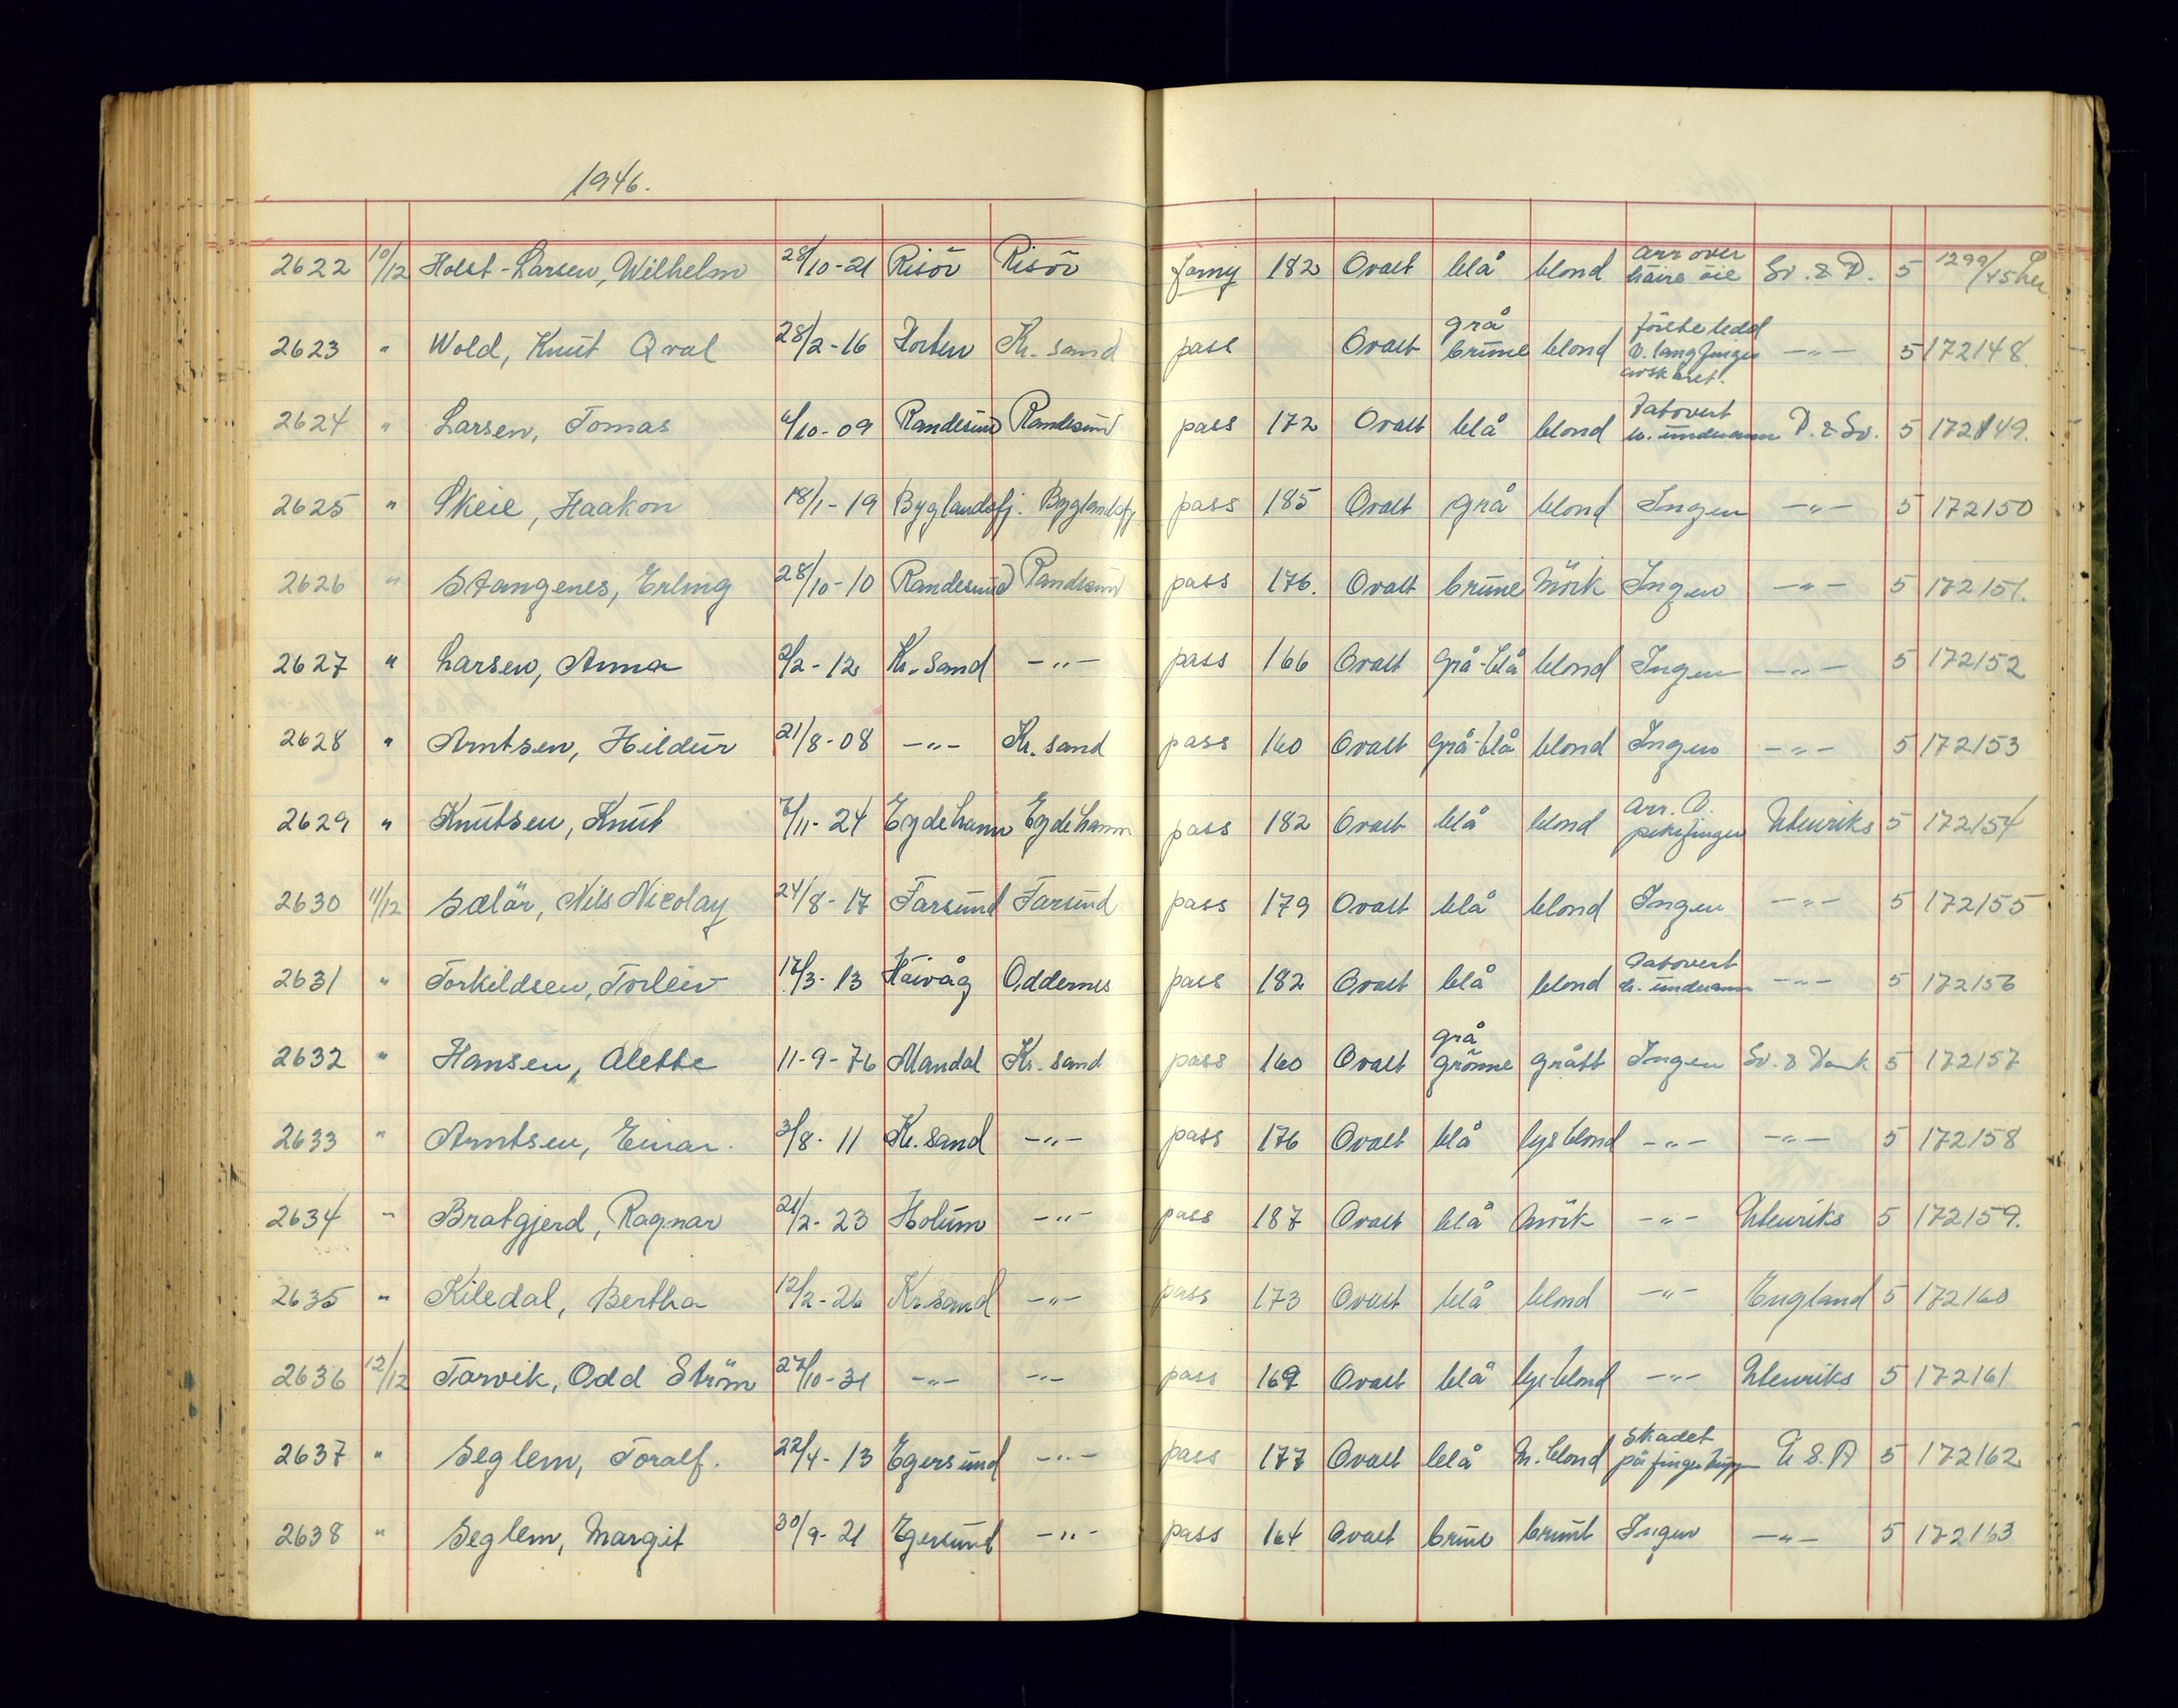 1946.
2622 10/12 Holst-Larsen, Wilhelm 28/10-21 Risör Risör forny 182 Ovalt blå blond arr over höire öie Sv. & D. 5 1299/45
2623 " Wold, Knut Qval 28/2-16 Horten Kr. sand pass Ovalt grå brune blond ledd v. langfinger avskåret. -"- 5 172148.
2624 " Larsen, Tomas /10-09 Randesund Randesund pass 172 Ovalt blå blond Tatovert underarm D. & Sv. 5 172149.
2625 " Skeie, Haakon 18/1-19 Byglandsfj. Byglandsfj. pass 185 Ovalt grå blond Ingen -"- 5 172150
2626 " Stangenes, Erling 28/10-10 Randesund Randesund pass 176. Ovalt brune Mörk Ingen -"- 5 172151.
2627 " Larsen, Anna 2/2-12 Kr. sand -"- pass 166 Ovalt grå-blå blond Ingen -"- 5 172152
2628 " Arntsen, Hildur 21/8-08 -"- Kr. sand pass 160 Ovalt grå-blå blond Ingen -"- 5 172153
2629 " Knutsen, Knut 7/11-24 Eydehamn Eydehamn pass 182 Ovalt blå blond arr. v. pekefinger Utenriks 5 172154
2630 11/12 Sælör, Nils Nicolay 24/8-17 Farsund Farsund pass 179 Ovalt blå blond Ingen -"- 5 172155
2631 " Torkildsen, Torleiv 17/3-13 Höivåg Oddernes pass 182 Ovalt blå blond Tatovert h. underarm -"- 5 172156
2632 " Hansen, Alette 11-9-76 Mandal Kr. sand pass 160 Ovalt grå grönne grått Ingen Sv. & Dank 5 172157
2633 " Arntsen, Einar. 3/8-11 Kr. sand -"- pass 176 Ovalt blå lysblond -"- -"- 5 172158
2634 " Bratgjerd, Ragnar 21/2-23 Holum -"- pass 187 Ovalt blå Mörk -"- Utenriks 5 172159.
2635 " Kiledal, Bertha 12/2-26 Kr. sand -"- pass 173 Ovalt blå blond -"- England 5 172160
2636 12/12 Tarvik, Odd Ström 27/10-31 -"- -"- pass 169 Ovalt blå lysblond -"- Utenriks 5 172161
2637 " Seglem, Toralf. 22/4-13 Egersund -"- pass 177 Ovalt blå M. blond Skadet på fingertupp U S. A 5 172162
2638 " Seglem, Margit 30/9-21 Egersund -"- pass 164 Ovalt brune brunt Ingen -"- 5 172163